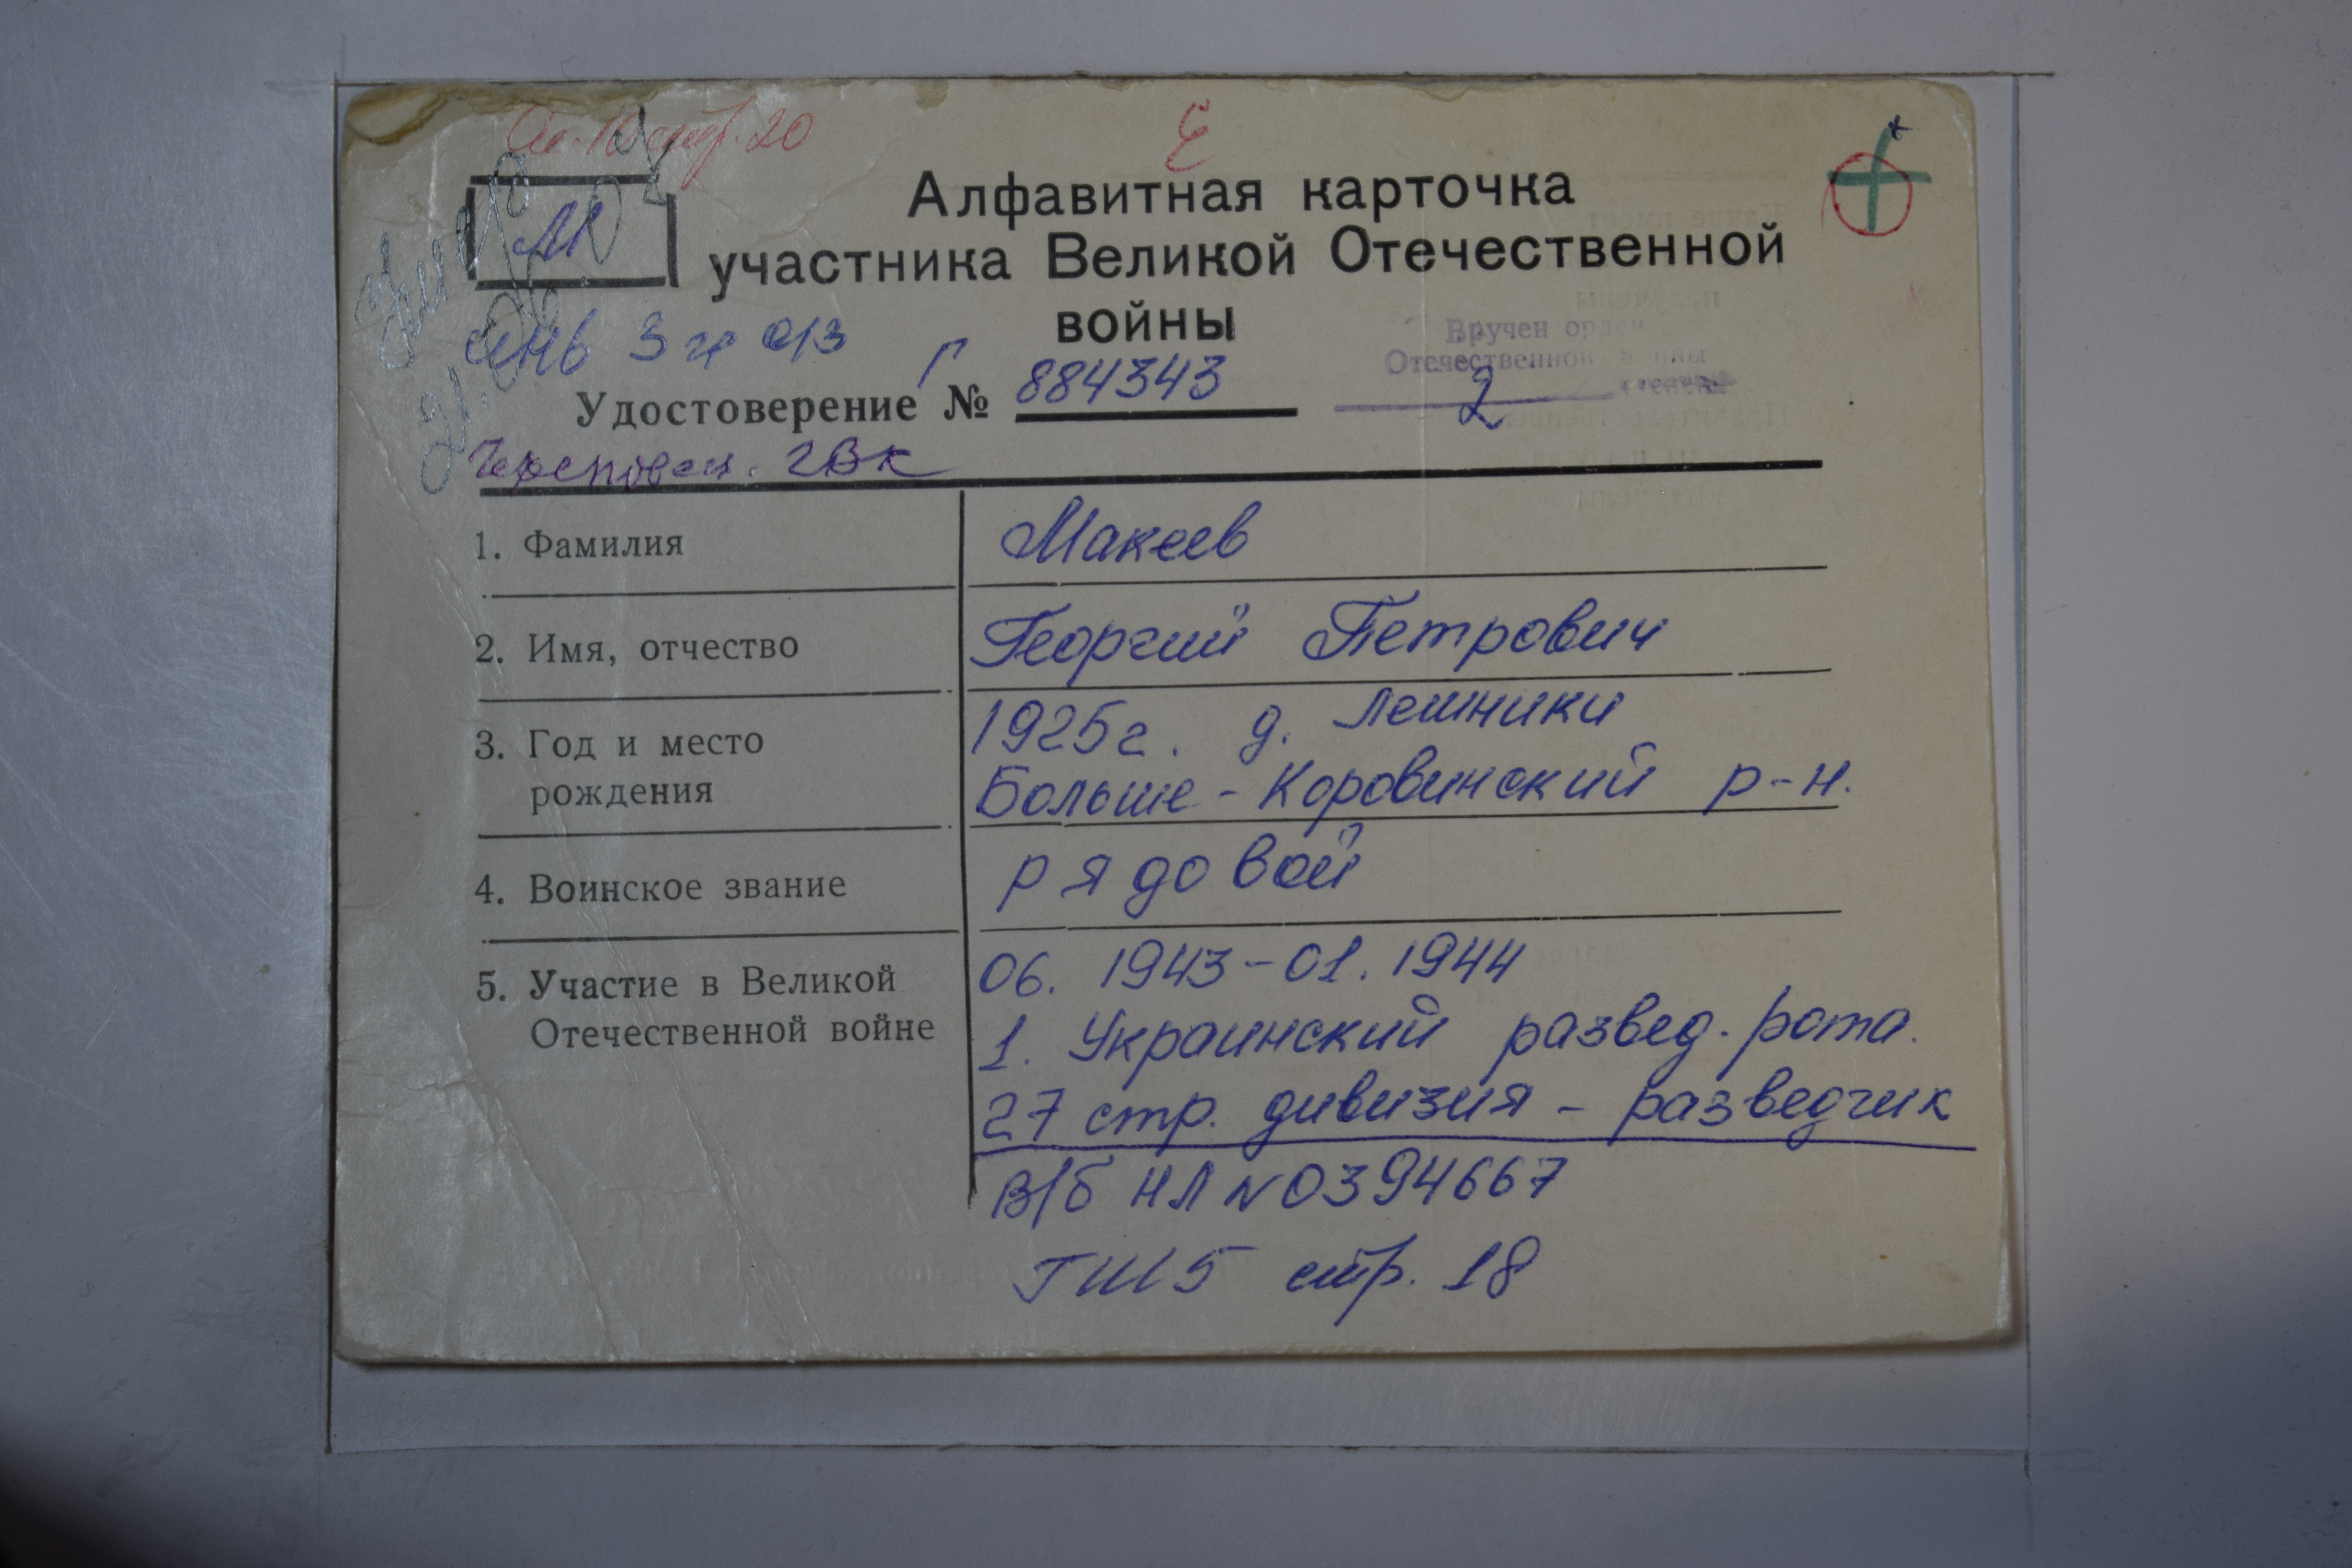 стр. 20
Е
М
Алфавитная карточка
участника Великой Отечественной
войны
Вручен орден
Отечественной войны
2 степени
Удостоверение № Г 884343
Череповец. ГВК
1. Фамилия Макеев
2. Имя, отчество Георгий Петрович
3. Год и место 1925г. д. Лешники
рождения Больше-Коровинский р-н.
4. Воинское звание рядовой
5. Участие в Великой 06. 1943-01. 1944
Отечественной войне 1. Украинский развед. рота.
27 стр. дивизия - разведчик
В/б НЛ N0394667
ГШ 5 стр. 18